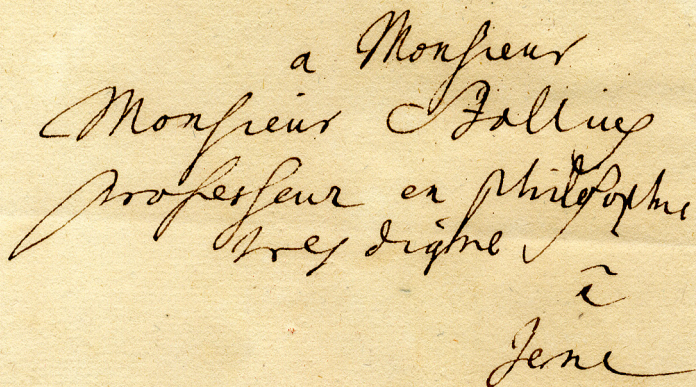 a Monsieur
Monsieur Stolling
professeur en philosophie
tres digne
à
Jene